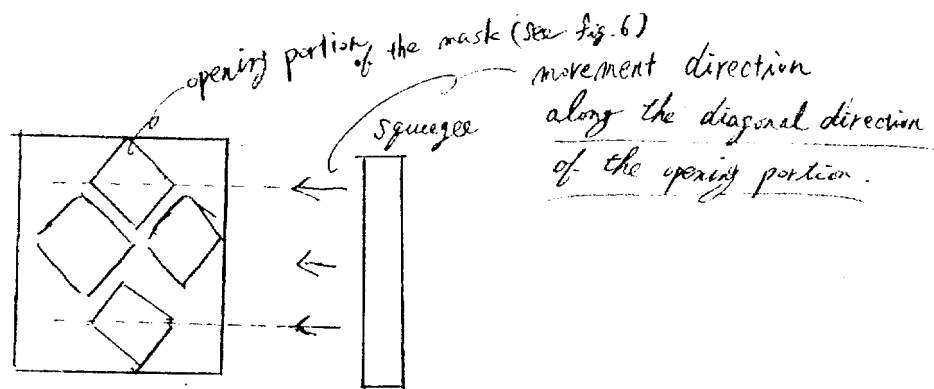 opening portion of the mask (see fig. 6)
movement direction
along the diagonal direction
of the opening portion.
squeegee